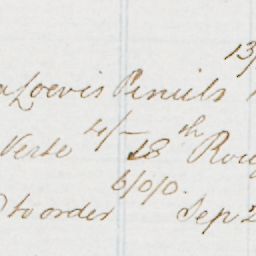 13/
Loevis Pencils
Verte 4/- 18th Roug
6/0/0.
to order Sep 2